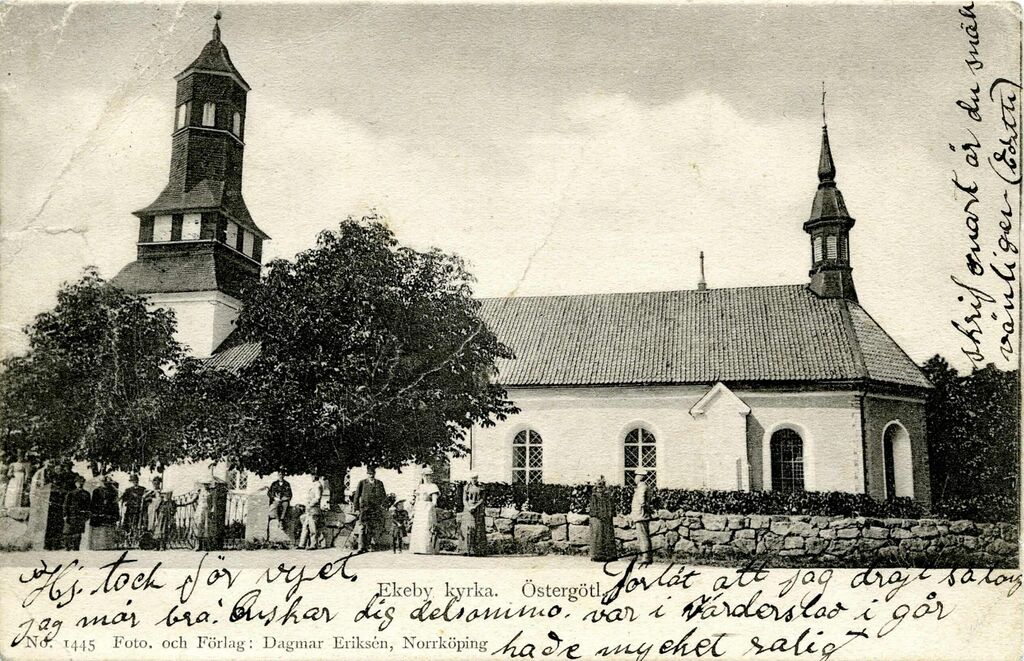 Hj. tack för vyet.
jag mår bra. Önskar dig detsamma.
Ekeby kyrka. Östergötl.
No. 1445 Foto. och Förlag: Dagmar Eriksén, Norrköping
Förlåt att jag dröjt så länge
var i Vårdersla i går
hade mycket rolig t
skrif snart är du snäll
vänligen